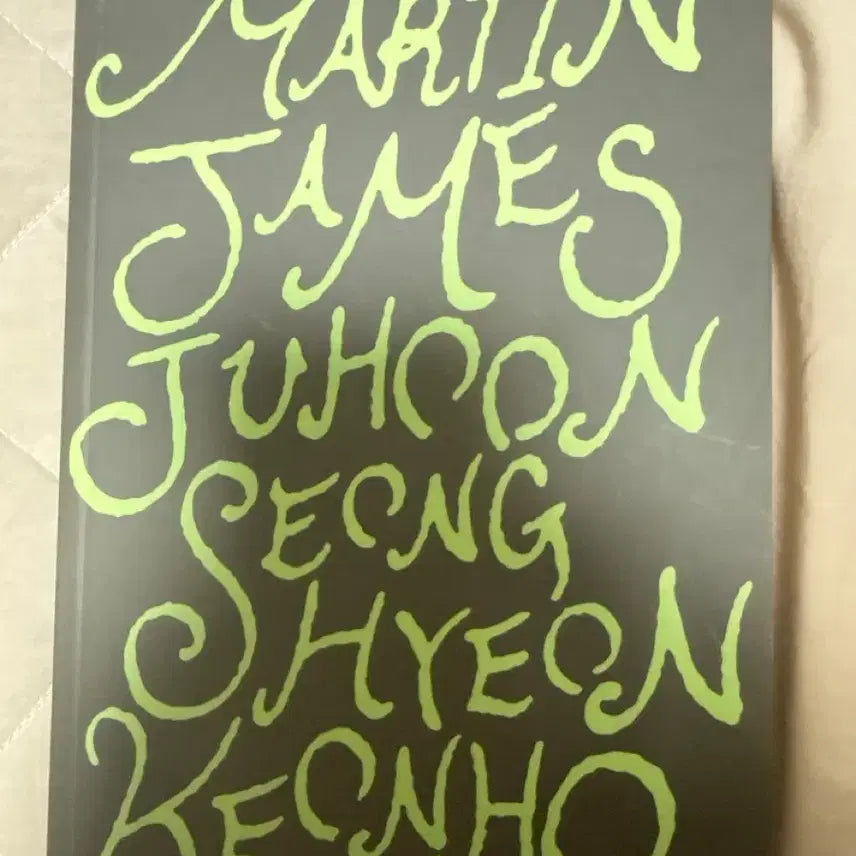 MARTIN
JAMES
JUHOON
SEONG
HYEON
KEONHO